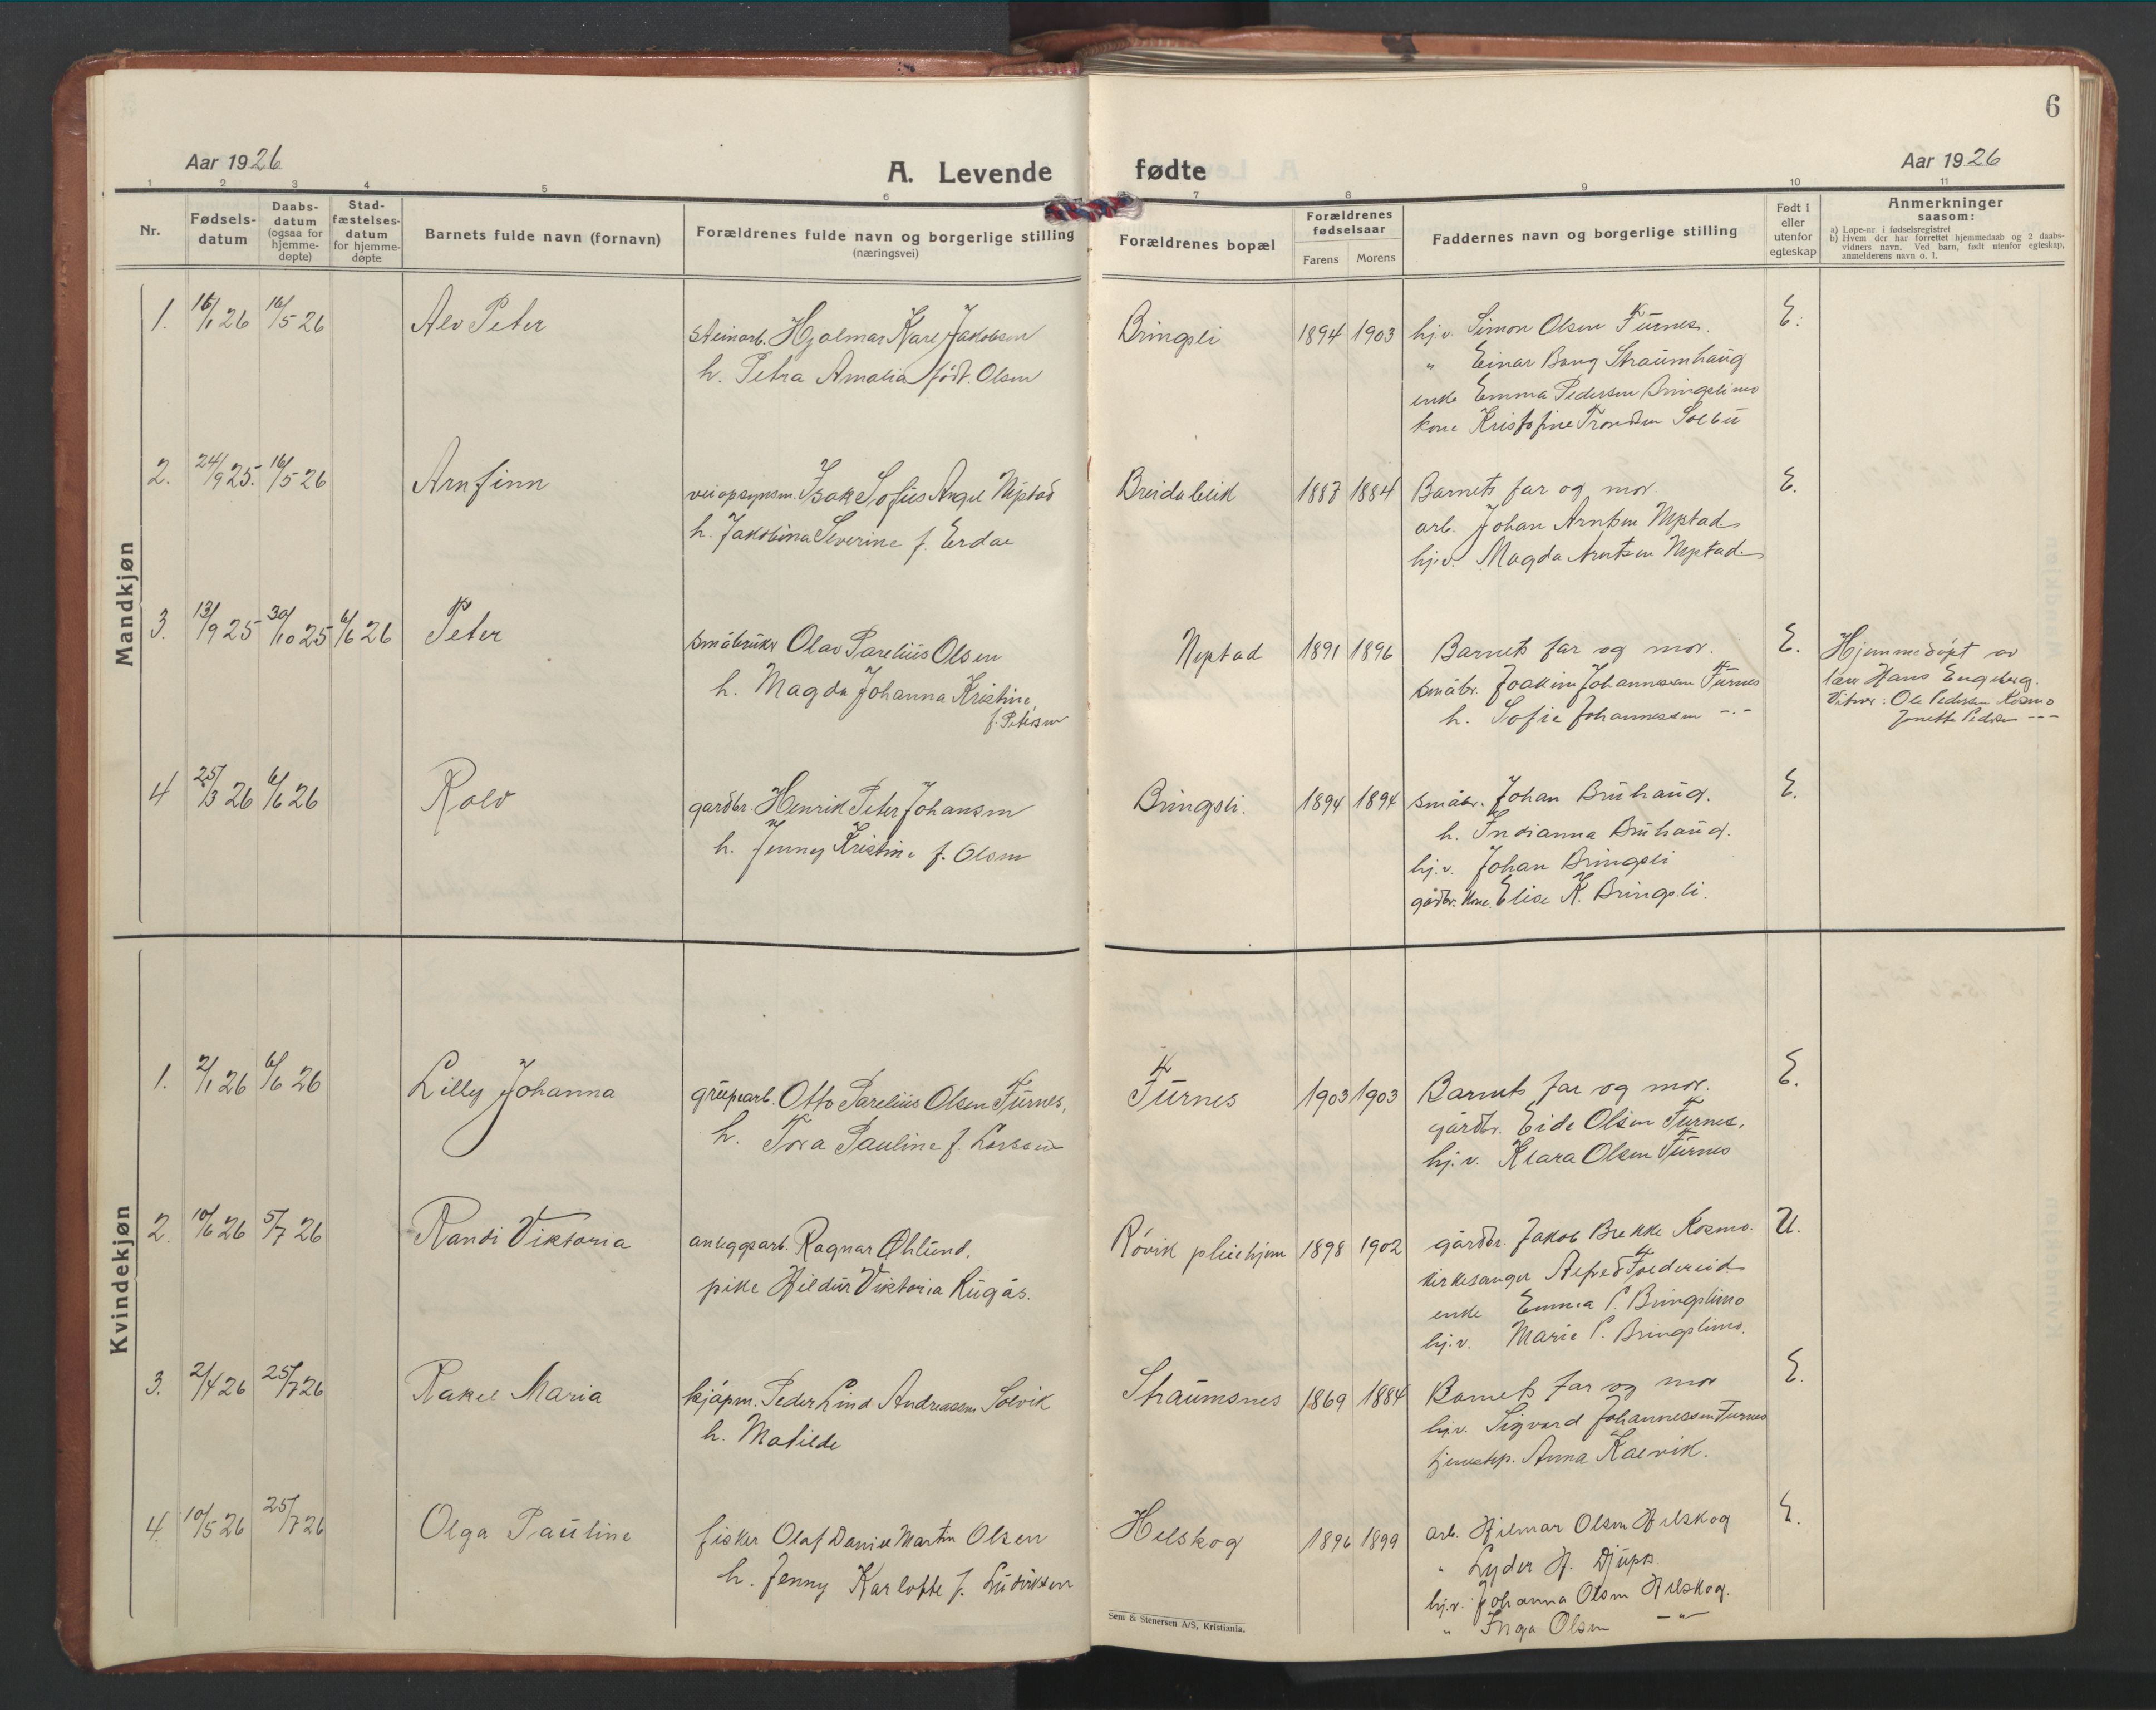 6
Aar 1926
A. Levende fødte
Aar 1926
1 2 3 4 5 6 7 8 9 10 11
Nr.
Fødsels-
datum
Daabs-
datum
(ogsaa for
hjemme-
døpte)
Stad-
fæstelses-
datum
for hjemme-
døpte
Barnets fulde navn (fornavn)
Forældrenes fulde navn og borgerlige stilling
(næringsvei)
Forældrenes bopæl
Forældrenes
fødselsaar
Farens Morens
Faddernes navn og borgerlige stilling
Født i
eller
utenfor
egteskap
Anmerkninger
saasom:
a) Løpe-nr. i fødselsregistret
b) Hvem der har forrettet hjemmedaab og 2 daabs-
vidners navn. Ved barn, født utenfor egteskap,
anmelderens navn o. l.
Mandkjøn
1. 16/1 26 16/5 26 Alv Peter
steinarb. Hjalmar Karl Jakobsen
h. Petra Amalia født. Olsen
Bringsli 1894 1903
hj.v. Simon Olsen Furnes.
" Einar Bang Straumhaug
enke Emma Pedersen Bringslimo
kone Kristofine Trondsen Solbu
E.
2. 24/9 25. 16/5 26 Arnfinn
veiopsynsm. Isak Sofus Angel Nystad
h. Jakobina Severine f. Erdal
Breidableik 1887 1884
Barnets far og mor.
arb. Johan Arntsen Nystad
hj.v. Magda Arntsen Nystad
E.
3. 13/9 25 30/10 25 6/6 26 Peter
småbruker Olav Parelius Olsen
h. Magda Johanna Kristine,
f. Petersen
Nystad 1891 1896
Barnets far og mor.
småbr. Joakim Johannessen Furnes
h. Sofie Johannessen -"-
E.
Hjemmedøpt av
lær Hans Engeberg.
Vitner: Ole Pedersen Kosmo
Jonette Pedersen ---
4 25/3 26 6/6 26 Rolv
gardbr. Henrik Peter Johansen
h. Jenny Kristine f. Olsen
Bringsli. 1894 1894
småbr. Johan Bruhaug.
h. Indianna Bruhaug.
hj.v. Johan Bringsli
gårdbr. kone. Elise K. Bringsli.
E.
Kvindekjøn
1. 2/1 26 6/6 26 Lilly Johanna
grubearb. Otto Parelius Olsen Furnes,
h. Tora Pauline f. Larssen
Furnes 1903 1903
Barnets far og mor.
gårdbr. Eide Olsen Furnes.
hj.v. Klara Olsen Furnes
E.
2. 10/6 26 5/7 26 Randi Viktoria
anleggsarb. Ragnar Øhlund.
pike Hildur Viktoria Rugås.
Røvik pleiehjem 1898 1902
gårdbr. Jakob Brekke Kosmo.
kirkesanger Alfred Foldereid
enke Emma P. Bringslimo
hj.v. Marie P. Bringslimo.
U.
3. 2/4 26 25/7 26 Rakel Maria
kjøpm. Peder Lind Andreassen Solvik
h. Matilde
Straumsnes 1869 1884
Barnets far og mor
hj.v. Sigvard Johannessen Furnes
tjenestep. Anna Kalvik.
E.
4. 10/5 26 25/7 26 Olga Pauline
fisker Olaf Daniel Martin Olsen
h. Jenny Karlotte f. Ludviksen
Helskog 1896 1899
arb. Hilmar Olsen Helskog
" Lyder H. Djupå
hj.v. Johanna Olsen Helskog.
" Inga Olsen -"-
E.
Sem & Stenersen A/S, Kristiania.